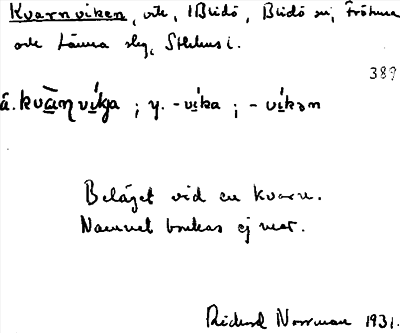 Kvarnviken, vik, i Blidö, Blidö sn, Frötuna
och Länna slg, Sthlms l.
389
ä. kvànvíka ; y. -víka ; -víkən
Beläget vid en kvarn.
Namnet brukas ej mer.
Rickard Norrman 1931.